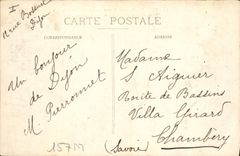 CARTE POSTALE
CORRESPONDANCE
ADRESSE
Dijon
Un bonjour
de Dijon
M Pierronnet
Madame
S Aiguier
Route de Bassens
Villa Girard
Chambéry
(Savoie)